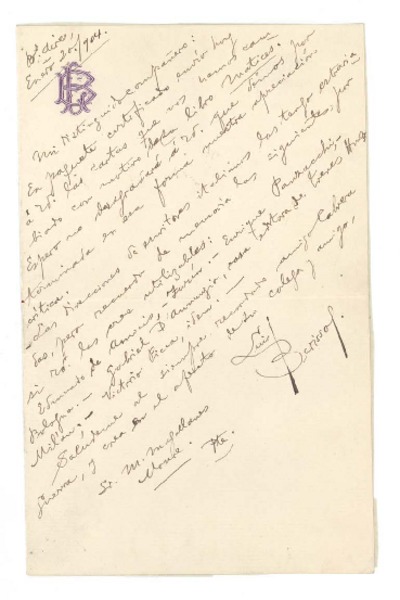 Bs. Aires,
Enero 20/904.
Mi distinguido compañero:
En paquete certificado envío hoy
á Vd. las cartas que nos hemos cam
biado con motivo de su libro Matices.
Espero no desagradará á Vd. que demos por
terminada en esa forma nuestra apreciación
crítica.
Las direcciones de escritores italianos las tengo
tas, pero recuerdo de memoria las siguientes, por
si Vd. les cree utilizables: Enrique Panzacchi,-
Edmundo de Amicis, Turín.-
Bologna.- Gabriel D'Annunzio, casa editora de Treves
Milán.- Victorio Pica, idem.-
Salúdeme al siempre recordado amigo Cabrera
Guerra, y crea en el afecto de su colega y amigo,
Luis Berisso
Sr. M. Magallanes
Moure. Pte.